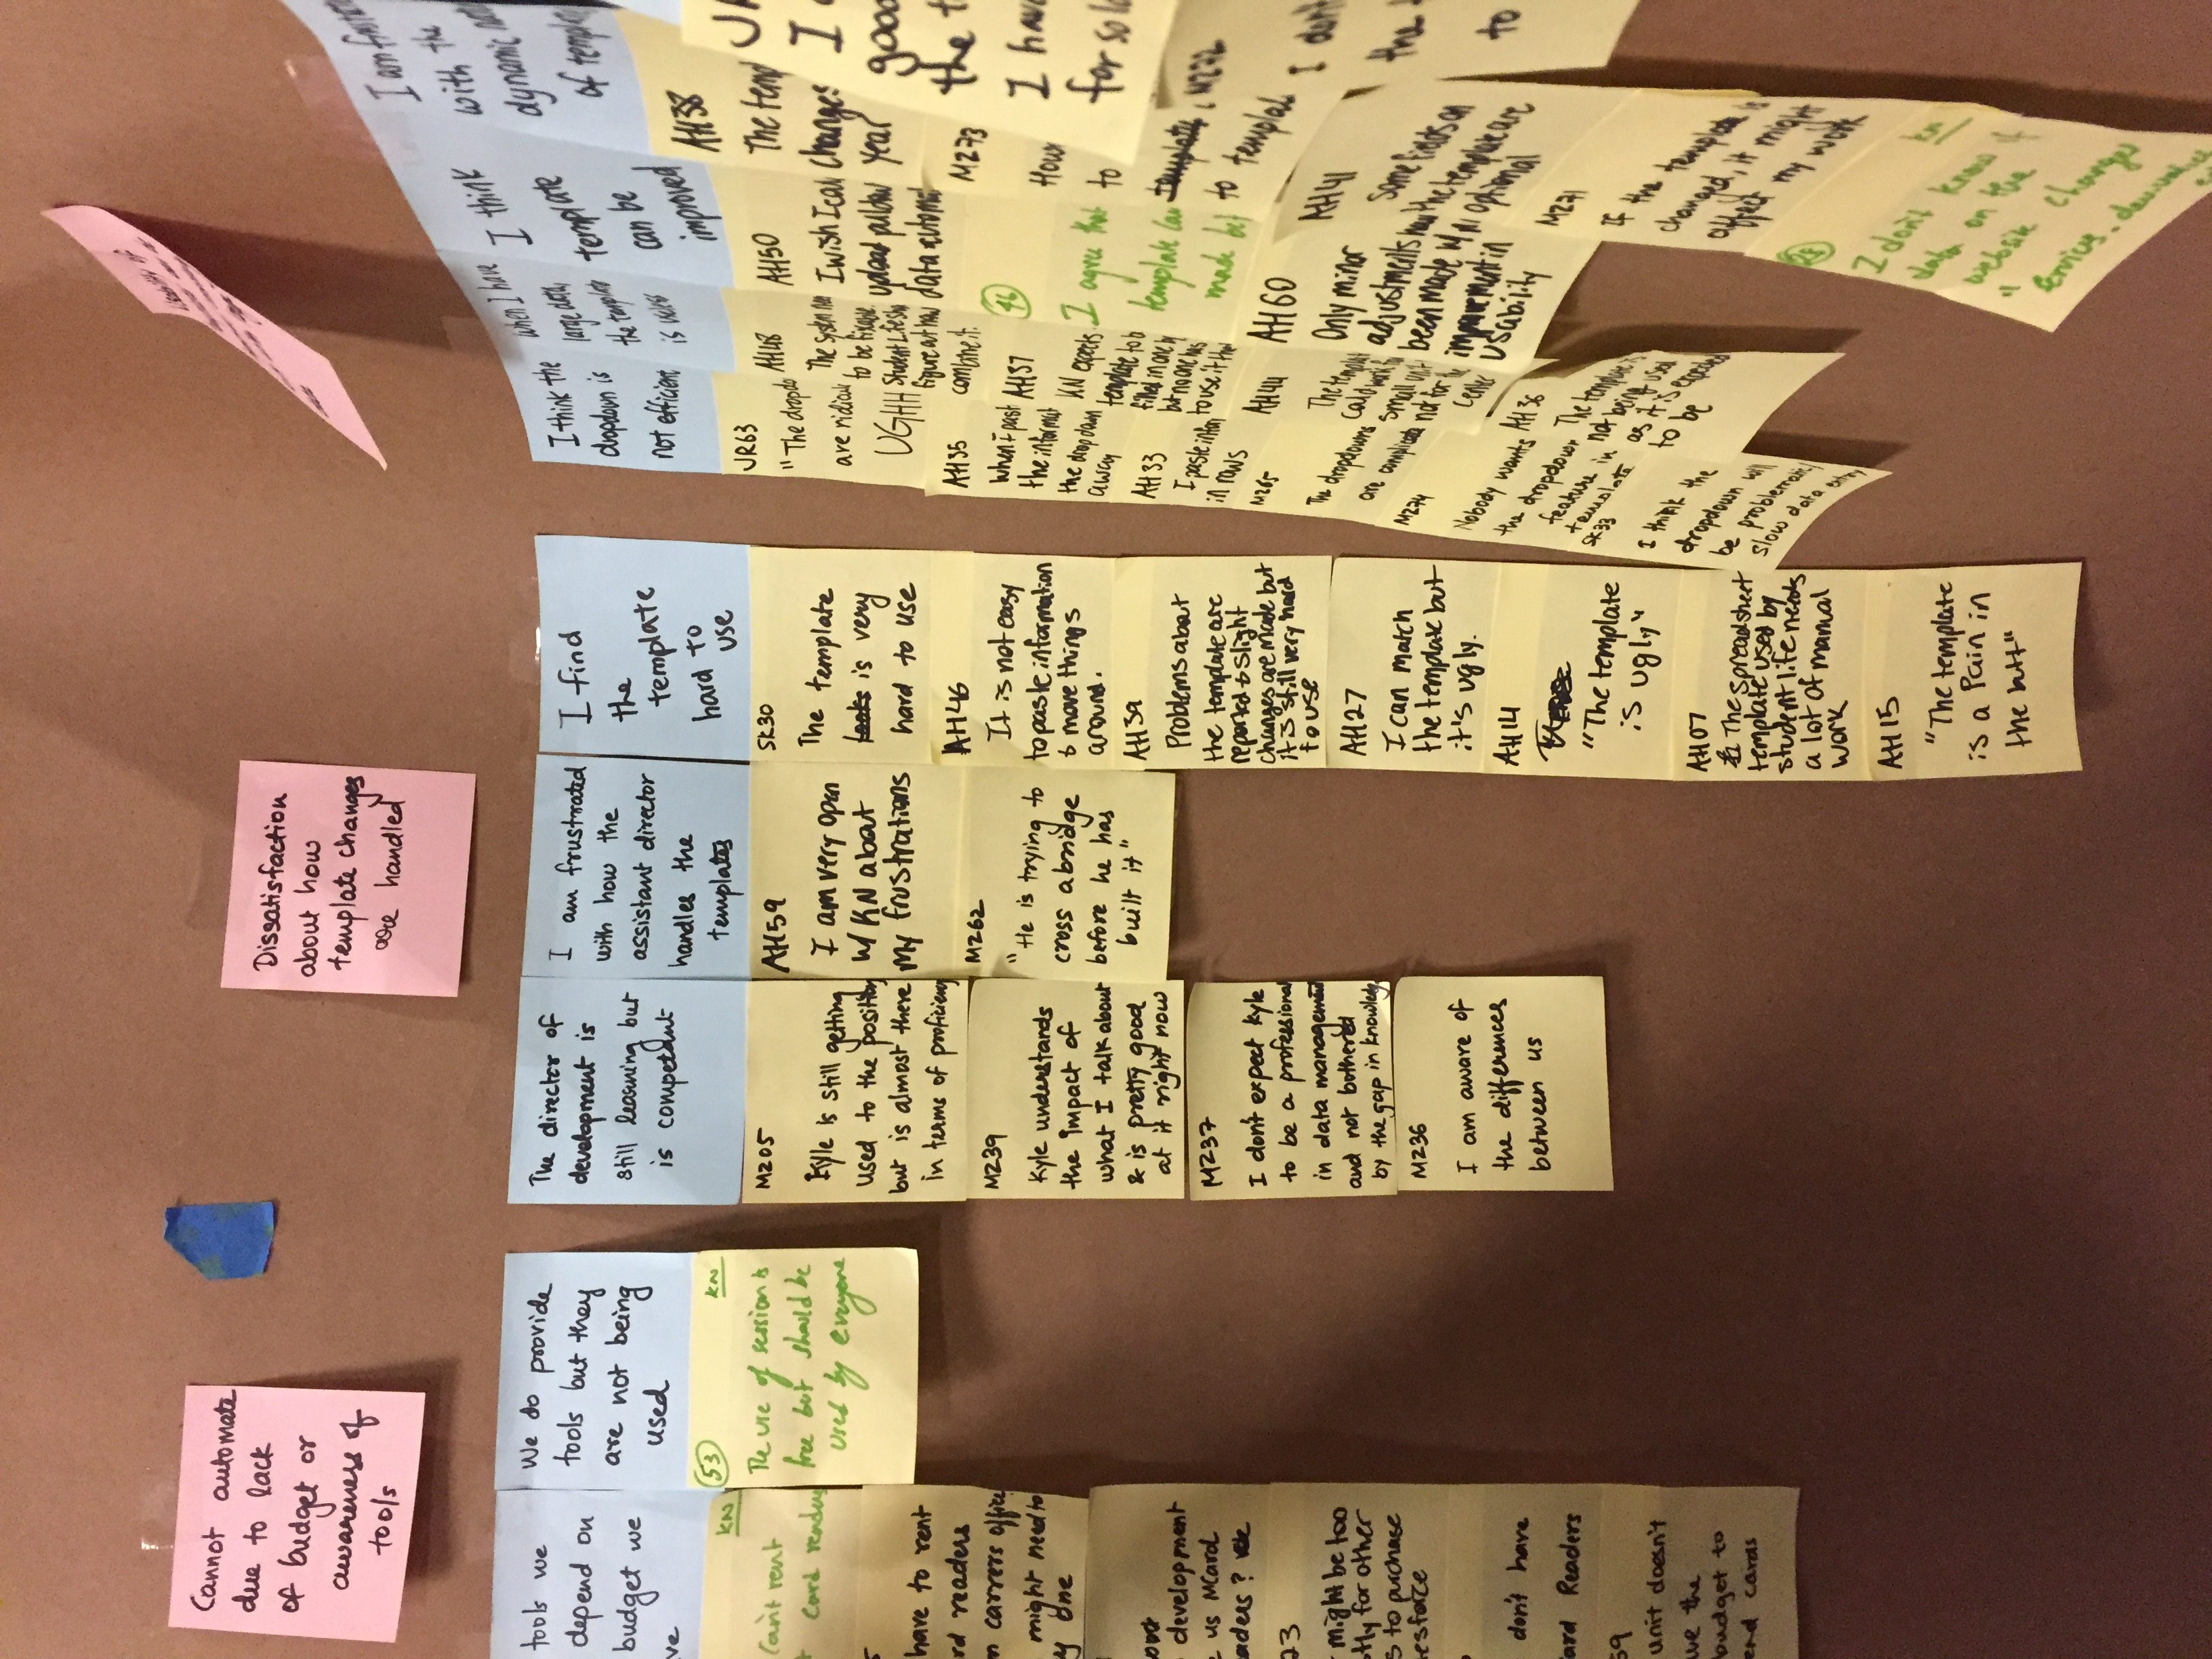 Cannot automate
due to lack
of budget or
awareness of
tools
Dissatisfaction
about how
template changes
are handled
Usability of
tools we
depend on
budget we
ve
KN
Can't rent
card readers
have to rent
rd readers
m carrers office
might need to
y one
development
us MCard
aders?
23
might be too
stly for other
s to purchase
esforce
don't have
ard Readers
59
unit doesn't
ave the
budget to
cards
We do provide
tools but they
are not being
used
53 KN
The use of session is
free but should be
used by everyone
The director of
development is
still learning but
is competant
M205
Kyle is still getting
used to the position
but is almost there
in terms of proficiency
M239
Kyle understands
the impact of
what I talk about
& is pretty good
at it right now
M237
I don't expect Kyle
to be a professional
in data management
and not bothered
by the gap in knowledge
M236
I am aware of
the differences
between us
I am frustrated
with how the
assistant director
handles the
templates
AH59
I am very open
w/ KN about
my frustrations
M262
"He is trying to
cross a bridge
before he has
built it"
I find
the
template
hard to
use
SK30
The template
looks is very
hard to use
AH46
It is not easy
to paste information
& move things
around.
AH39
Problems about
the template are
reported & slight
changes are made but
it is still very hard
to use
AH27
I can match
the template but
it's ugly.
AH14
"The template
is ugly"
AH07
The spreadsheet
template used by
student life needs
a lot of manual
work
AH15
"The template
is a Pain in
the butt"
I think the
dropdown is
not efficient
JR63
"The dropdo
are ridicul
UGHH
AH35
When I past
the informat
the dropdown
away
AH33
I paste infor
in rows
M265
The dropdowns
are complicate
M274
Nobody wants
the dropdown
feature in
template
SK33
I think the
dropdown will
be problematic/
slow data entry
when I have
large data,
the template
is useless
AH48
The system nee
to be fixable.
Student Life sho
figure out how
combine it.
AH37
KN expects
template to b
filled in one by
but no one has
to use it tha
AH44
The templat
could work fo
small unit
not for the
center
AH36
The template is
not being used
as it is expected
to be
I think
template
can be
improved
AH50
I wish I coul
upload pulldow
data automat
46
I agree that
template can
made bet
AH60
Only minor
adjustments have
been made w/ no
improvement in
usability
I am frustrat
with the
dynamic natu
of templa
AH38
The temp
changes
year
M273
Hour
to
template
to templat
AH41
Some fields on
the template are
optional
M271
If the template is
changed, it might
affect my work
28 KN
I don't know if
data on the
website changes
"services.
I
good
the t
I hav
for so lo
M272
I don't
the
to